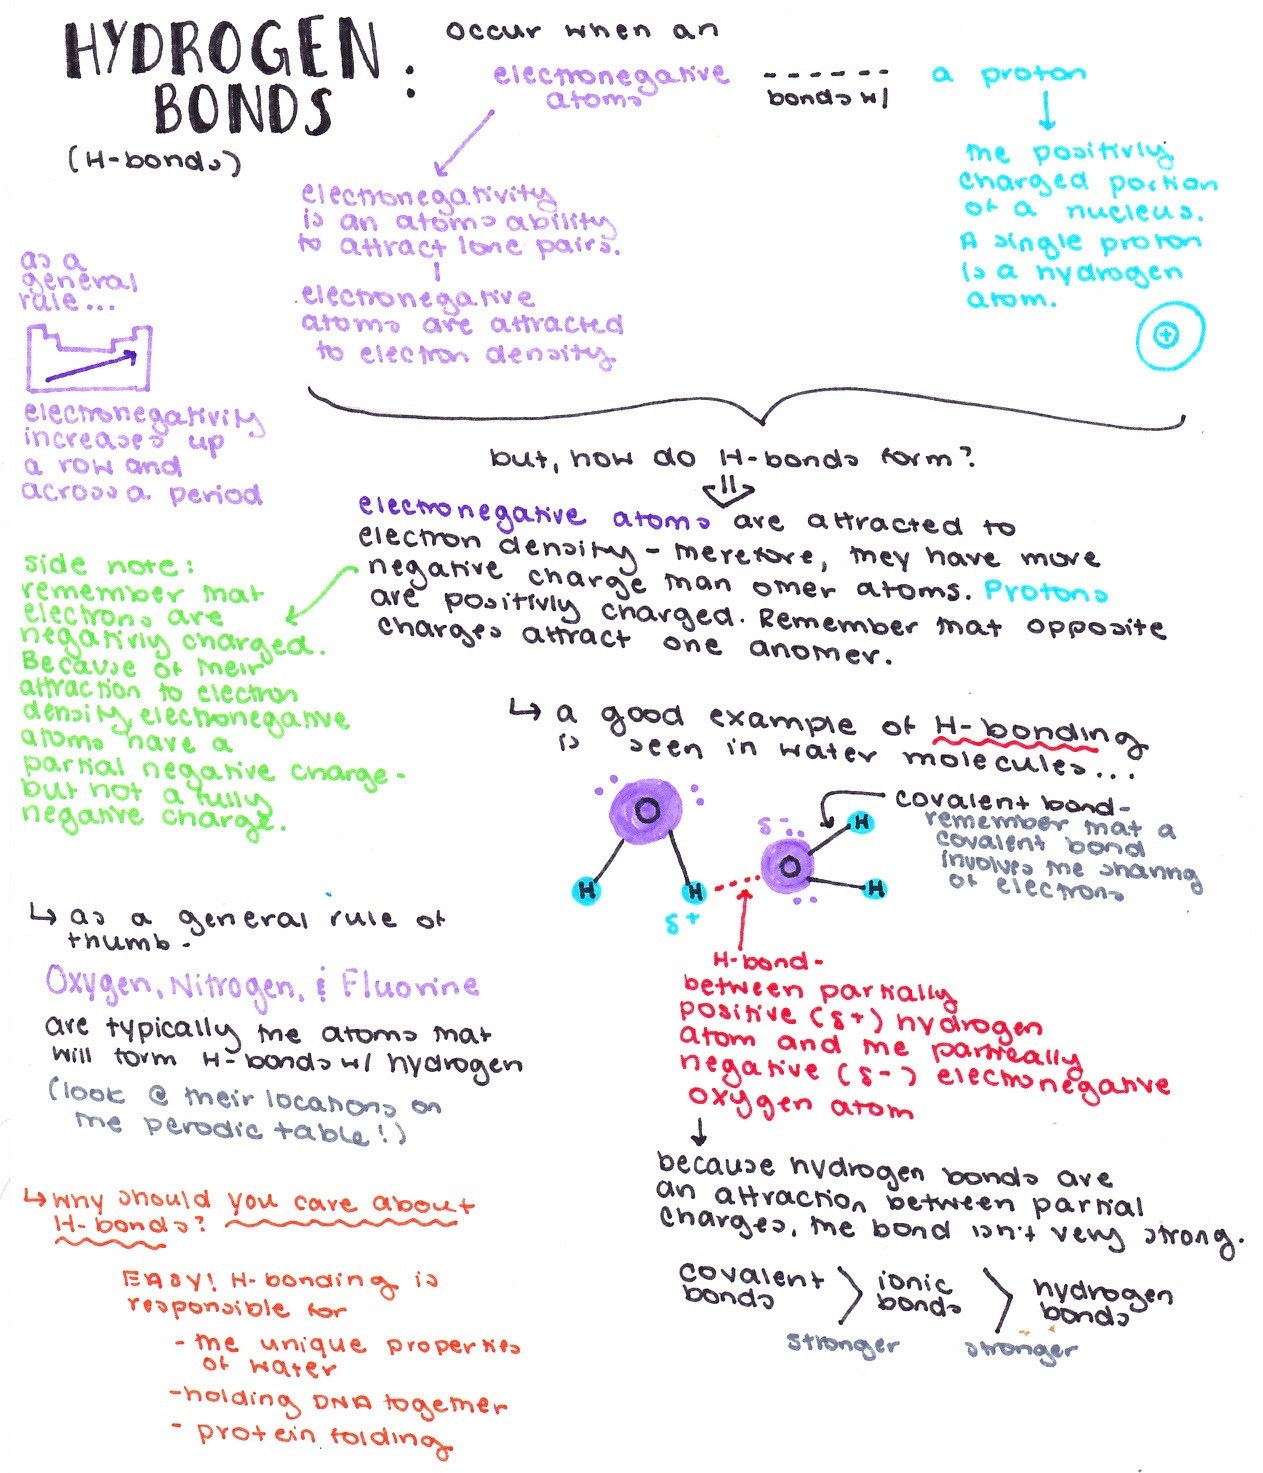 HYDROGEN
BONDS :
(H-bonds)
occur when an
electronegative
atoms
------
bonds w/
a proton
the positivly
charged portion
of a nucleus.
A single proton
is a hydrogen
atom.
+
electronegativity
is an atoms ability
to attract lone pairs.
electronegative
atoms are attracted
to electron density.
as a
general
rule...
electronegativity
increases up
a row and
across a period
but, how do H-bonds form?
electronegative atoms are attracted to
electron density - therefore, they have more
negative charge than other atoms. Protons
are positivly charged. Remember that opposite
charges attract one another.
side note:
remember that
electrons are
negativly charged.
Because of their
attraction to electron
density, electronegative
atoms have a
partial negative charge -
but not a fully
negative charge.
↳ a good example of H-bonding
is seen in water molecules...
O
H
H
δ+
δ-
O
H
H
covalent bond-
remember that a
covalent bond
involves the sharing
of electrons
H-bond-
between partially
positive (δ+) hydrogen
atom and the partically
negative (δ-) electronegative
oxygen atom
because hydrogen bonds are
an attraction between partial
charges, the bond isn't very strong.
covalent
bonds
>
ionic
bonds
>
hydrogen
bonds
stronger
stronger
↳ as a general rule of
thumb -
Oxygen, Nitrogen, & Fluorine
are typically the atoms that
will form H-bonds w/ hydrogen
(look @ their locations on
the perodic table!)
↳ why should you care about
H-bonds?
EASY! H-bonding is
responsible for
- the unique properties
of water
- holding DNA together
- protein folding